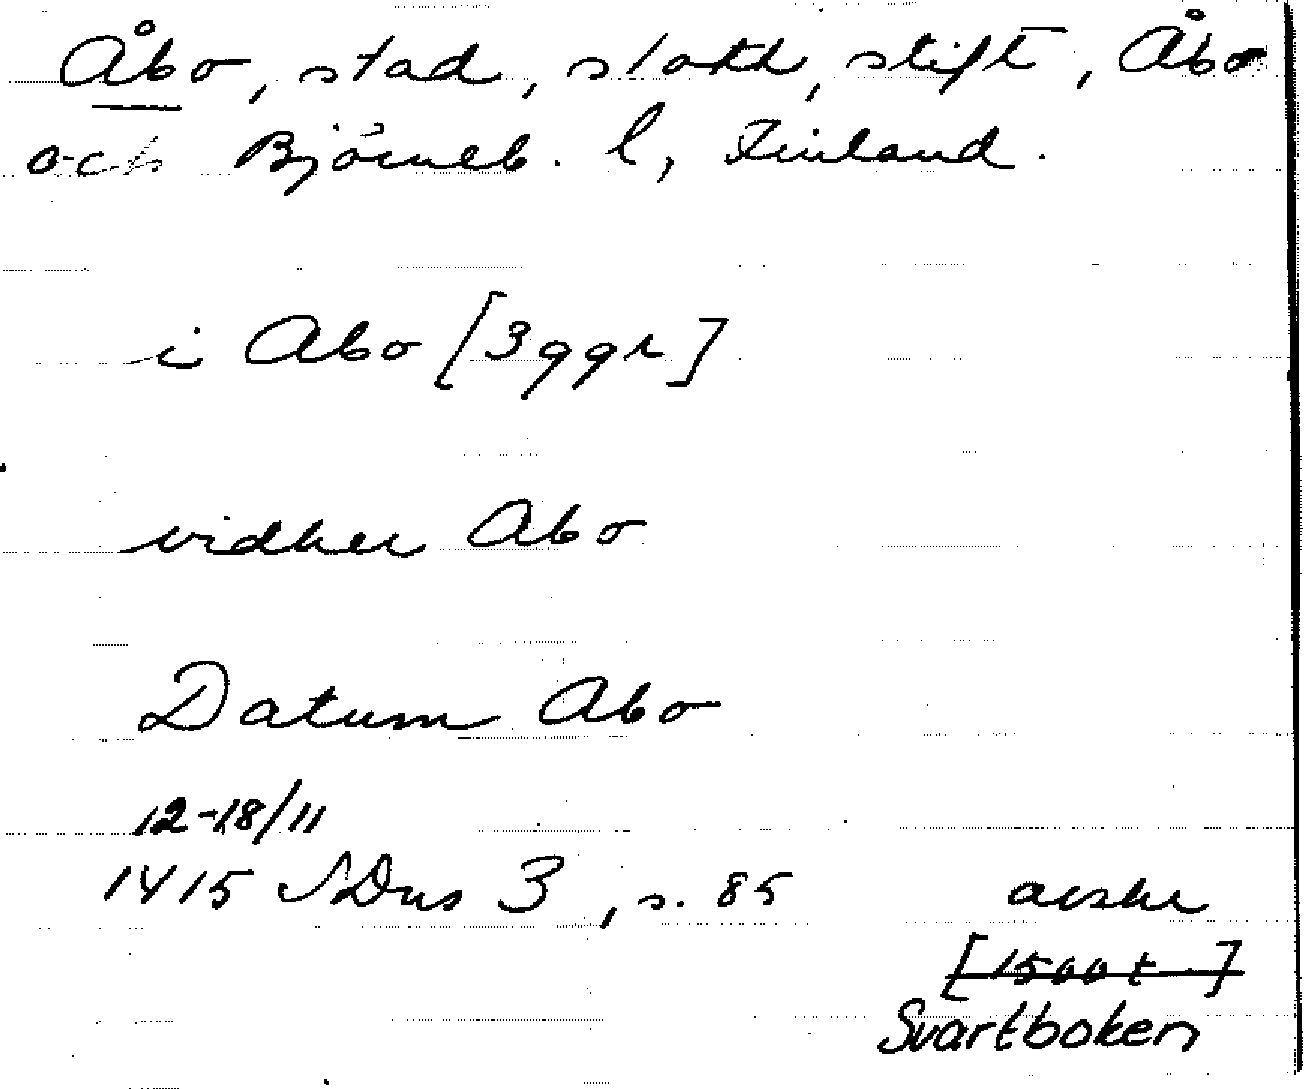 Åbo, stad, slott, stift, Åbo
och Björneb. l, Finland.
i Abo [3 ggr]
vidher Abo
Datum Abo
12-18/11
1415 SDns 3, s. 85 avskr
[1500 t]
Svartboken